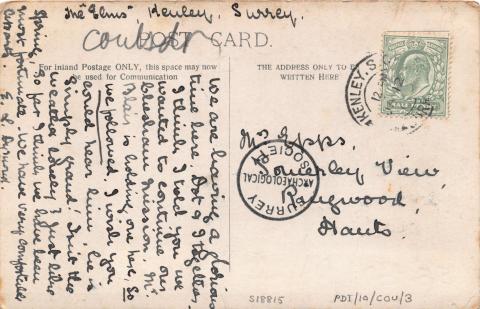 The "Elms", Kenley, Surrey.
Coulsdn
POST CARD.
For inland Postage ONLY, this space may now
be used for Communication
THE ADDRESS ONLY TO BE
WRITTEN HERE
We are having a glorious
time here. Dot & I together.
I think I told you we
wanted to continue our
Chesham Mission. Mr
is holding one here. So
we followed. I wish you
could hear him he is
simply grand! Isn't the
weather lovely? Just like
Spring. So far I think we have been
most fortunate. We have very comfortable
E. L.
KENLEY. S.
Mrs Epps,
Somerley View,
Ringwood,
Hants.
SURREY ARCHAEOLOGICAL SOCIETY
S18815
PDI/10/COU/3